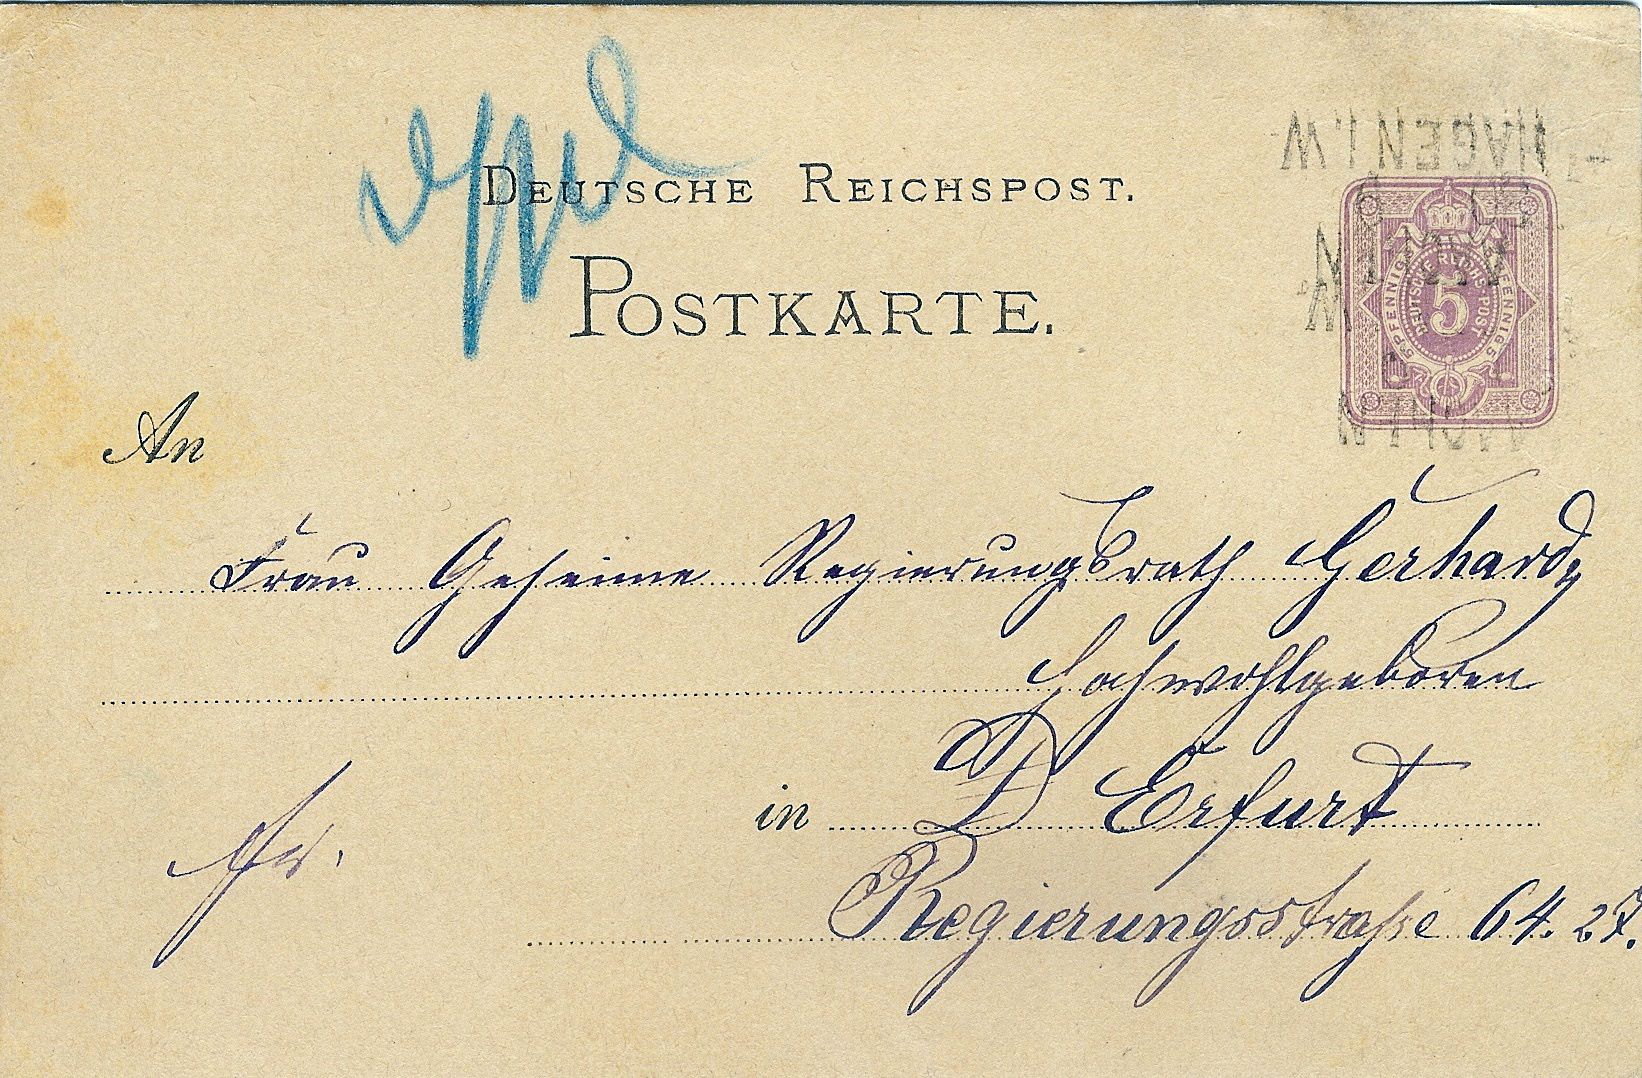 DEUTSCHE REICHSPOST.
POSTKARTE.
HAGEN I.W.
5 PFENNIG 5 PFENNIG 5
DEUTSCHE REICHS-POST
5
An
Frau Geheime Regierungsrath Gerhardy
Hochwohlgeboren
in Erfurt
Regierungsstraße 64.
Fr.